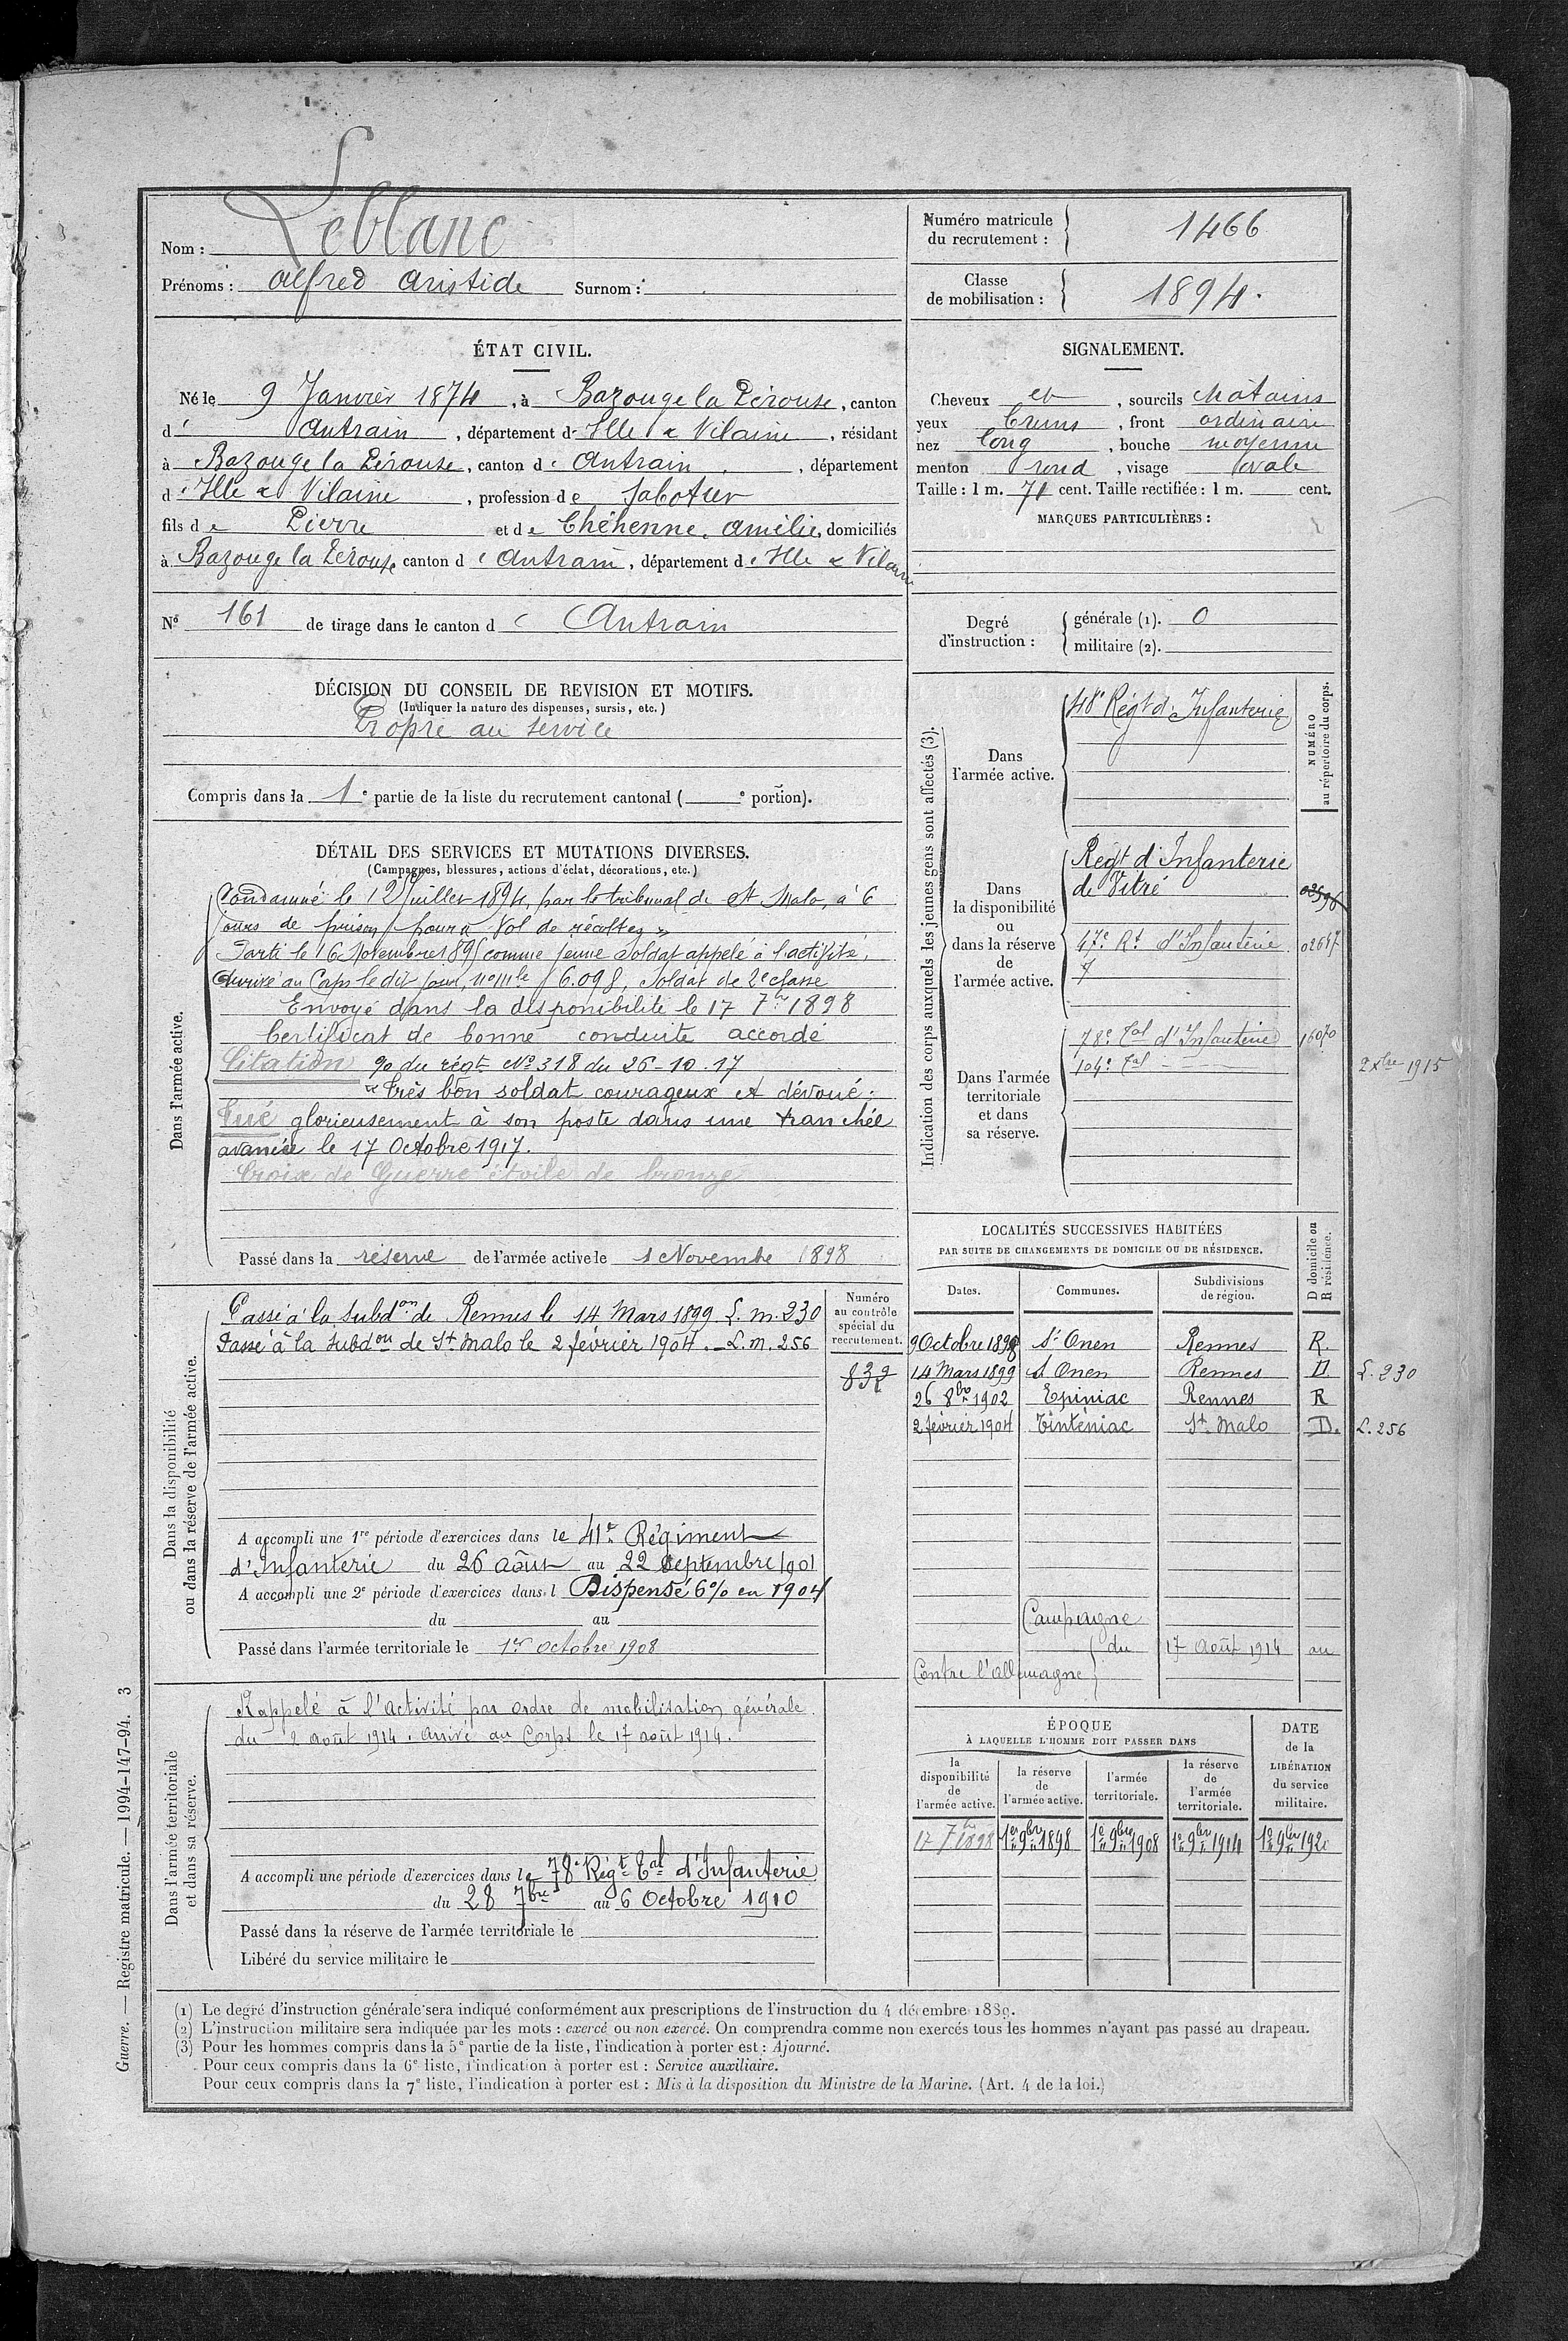 Nom : Leblanc
Prénoms : Alfred Aristide Surnom :
Numéro matricule du recrutement : 1466
Classe de mobilisation : 1894.
ÉTAT CIVIL.
Né le 9 Janvier 1874, à Bazouge la Pérouse, canton
d' Antrain, département d' Ille & Vilaine, résidant
à Bazouge la Pérouse, canton d' Antrain, département
d' Ille & Vilaine, profession de Sabotier
fils de Pierre et de Chéhenne, Amélie, domiciliés
à Bazouge la Pérouse, canton d' Antrain, département d' Ille & Vilaine
N° 161 de tirage dans le canton d' Antrain
SIGNALEMENT.
Cheveux et, sourcils châtains
yeux bruns, front ordinaire
nez long, bouche moyenne
menton rond, visage ovale
Taille : 1 m. 71 cent. Taille rectifiée : 1 m. cent.
MARQUES PARTICULIÈRES :
Degré d'instruction : générale (1). 0
militaire (2).
DÉCISION DU CONSEIL DE REVISION ET MOTIFS.
(Indiquer la nature des dispenses, sursis, etc.)
Propre au service
Compris dans la 1e partie de la liste du recrutement cantonal ( e portion).
DÉTAIL DES SERVICES ET MUTATIONS DIVERSES.
(Campagnes, blessures, actions d'éclat, décorations, etc.)
Dans l'armée active.
Condamné le 12 Juillet 1894, par le tribunal de St Malo, à 6
jours de prison pour « Vol de récoltes »
Parti le 16 Novembre 1895 comme jeune soldat appelé à l'activité,
Arrivé au Corps le dit jour, no mle 6.098, Soldat de 2e classe
Envoyé dans la disponibilité le 17 7bre 1898
Certificat de bonne conduite accordé
Citation % du régt No 318 du 26-10-17
« Très bon soldat courageux et dévoué.
Tué glorieusement à son poste dans une tranchée
avancée le 17 Octobre 1917.
Croix de Guerre étoile de bronze
Passé dans la réserve de l'armée active le 1 Novembre 1898
Indication des corps auxquels les jeunes gens sont affectés (3).
NUMÉRO au répertoire du corps.
Dans l'armée active.
48e Régt d'Infanterie
Dans la disponibilité ou dans la réserve de l'armée active.
Régt d'Infanterie
de Vitré 02596
47e Rt d'Infanterie 02647
Dans l'armée territoriale et dans sa réserve.
78e Tal d'Infanterie 16070
104e Tal 2 Xbre 1915
Dans la disponibilité ou dans la réserve de l'armée active.
Numéro au contrôle spécial du recrutement.
832
Passé à la Subdon de Rennes le 14 Mars 1899 L. m. 230
Passé à la Subdon de St Malo le 2 février 1904. L. m. 256
A accompli une 1re période d'exercices dans le 41e Régiment
d'Infanterie du 26 août au 22 Septembre 1901
A accompli une 2e période d'exercices dans l Dispensé 6% en 1904
du au
Passé dans l'armée territoriale le 1er octobre 1908
LOCALITÉS SUCCESSIVES HABITÉES
PAR SUITE DE CHANGEMENTS DE DOMICILE OU DE RÉSIDENCE.
D domicile ou R résidence.
Dates. Communes. Subdivisions de région.
9 Octobre 1898 St Onen Rennes R.
14 Mars 1899 St Onen Rennes D L. 230
26 8bre 1902 Epiniac Rennes R
2 février 1904 Tinténiac St Malo D. L. 256
Campagne
Contre l'Allemagne du 17 Août 1914 au
Dans l'armée territoriale et dans sa réserve.
Rappelé à l'activité par ordre de mobilisation générale
du 2 août 1914. Arrivé au Corps le 17 août 1914.
A accompli une période d'exercices dans le 78e Régt Tal d'Infanterie
du 28 7bre au 6 Octobre 1910
Passé dans la réserve de l'armée territoriale le
Libéré du service militaire le
ÉPOQUE
À LAQUELLE L'HOMME DOIT PASSER DANS
la disponibilité de l'armée active.
la réserve de l'armée active.
l'armée territoriale.
la réserve de l'armée territoriale.
DATE de la LIBÉRATION du service militaire.
17 7bre 1898 1er 9bre 1898 1er 9bre 1908 1er 9bre 1914 1er 9bre 1920
(1) Le degré d'instruction générale sera indiqué conformément aux prescriptions de l'instruction du 4 décembre 1889.
(2) L'instruction militaire sera indiquée par les mots : exercé ou non exercé. On comprendra comme non exercés tous les hommes n'ayant pas passé au drapeau.
(3) Pour les hommes compris dans la 5e partie de la liste, l'indication à porter est : Ajourné.
Pour ceux compris dans la 6e liste, l'indication à porter est : Service auxiliaire.
Pour ceux compris dans la 7e liste, l'indication à porter est : Mis à la disposition du Ministre de la Marine. (Art. 4 de la loi.)
Guerre. — Registre matricule. — 1994-147-94. 3